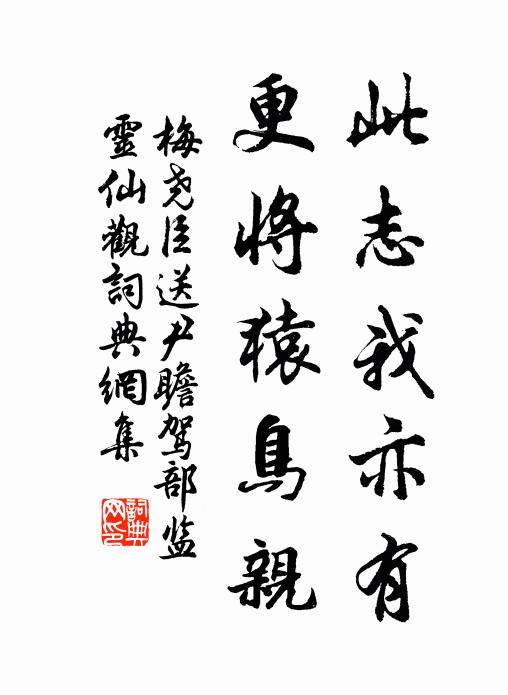 此志我亦有
更將猿鳥親
梅尧臣送尹瞻駕部监
靈仙觀詞典網集
詞典
网印